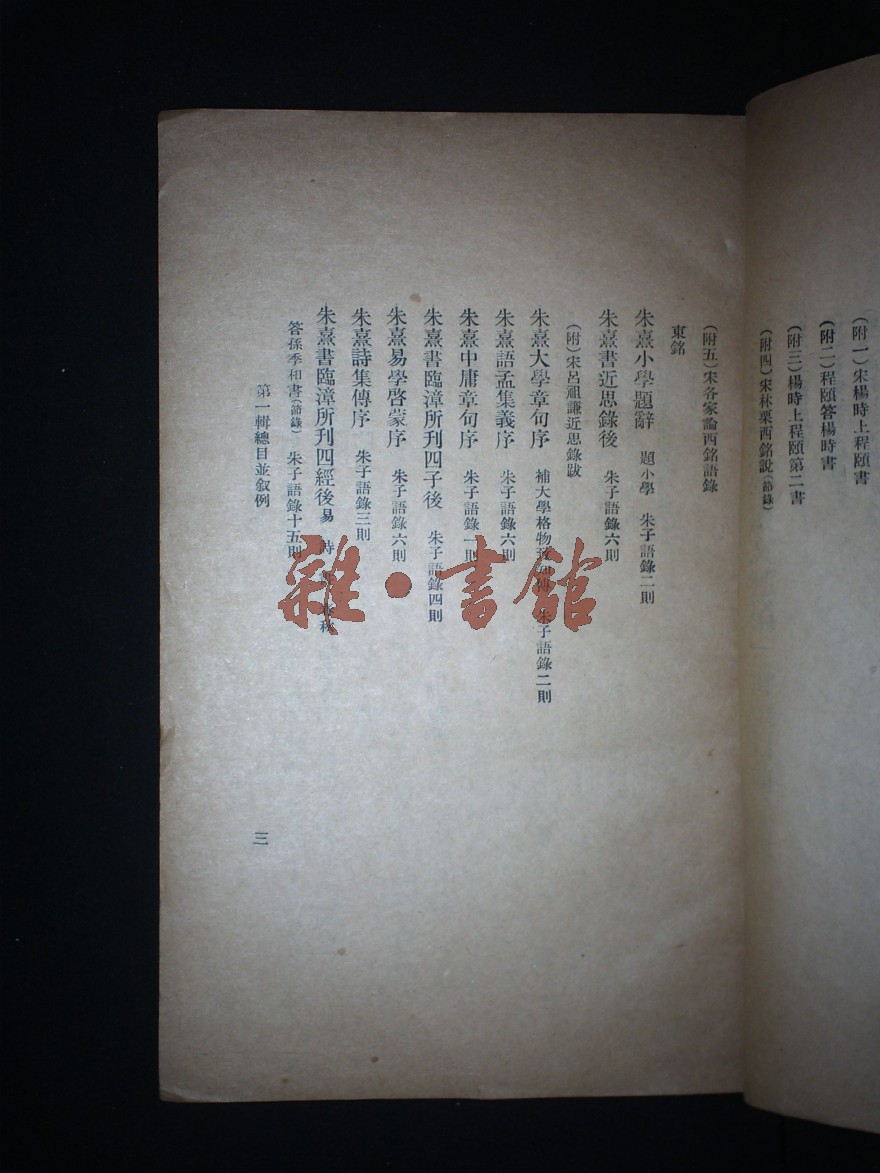 (附一)宋楊時上程頤書
(附二)程頤答楊時書
(附三)楊時上程頤第二書
(附四)宋林栗西銘說(節錄)
(附五)宋各家論西銘語錄
東銘
朱熹小學題辭 題小學 朱子語錄二則
朱熹書近思錄後 朱子語錄六則
(附)宋呂祖謙近思錄跋
朱熹大學章句序 補大學格物致知傳 朱子語錄二則
朱熹語孟集義序 朱子語錄六則
朱熹中庸章句序 朱子語錄一則
朱熹書臨漳所刊四子後 朱子語錄四則
朱熹易學啓蒙序 朱子語錄六則
朱熹詩集傳序 朱子語錄三則
朱熹書臨漳所刊四經後易 詩 春秋
答孫季和書(節錄) 朱子語錄十五則
第一輯總目並叙例
三
雜·書館